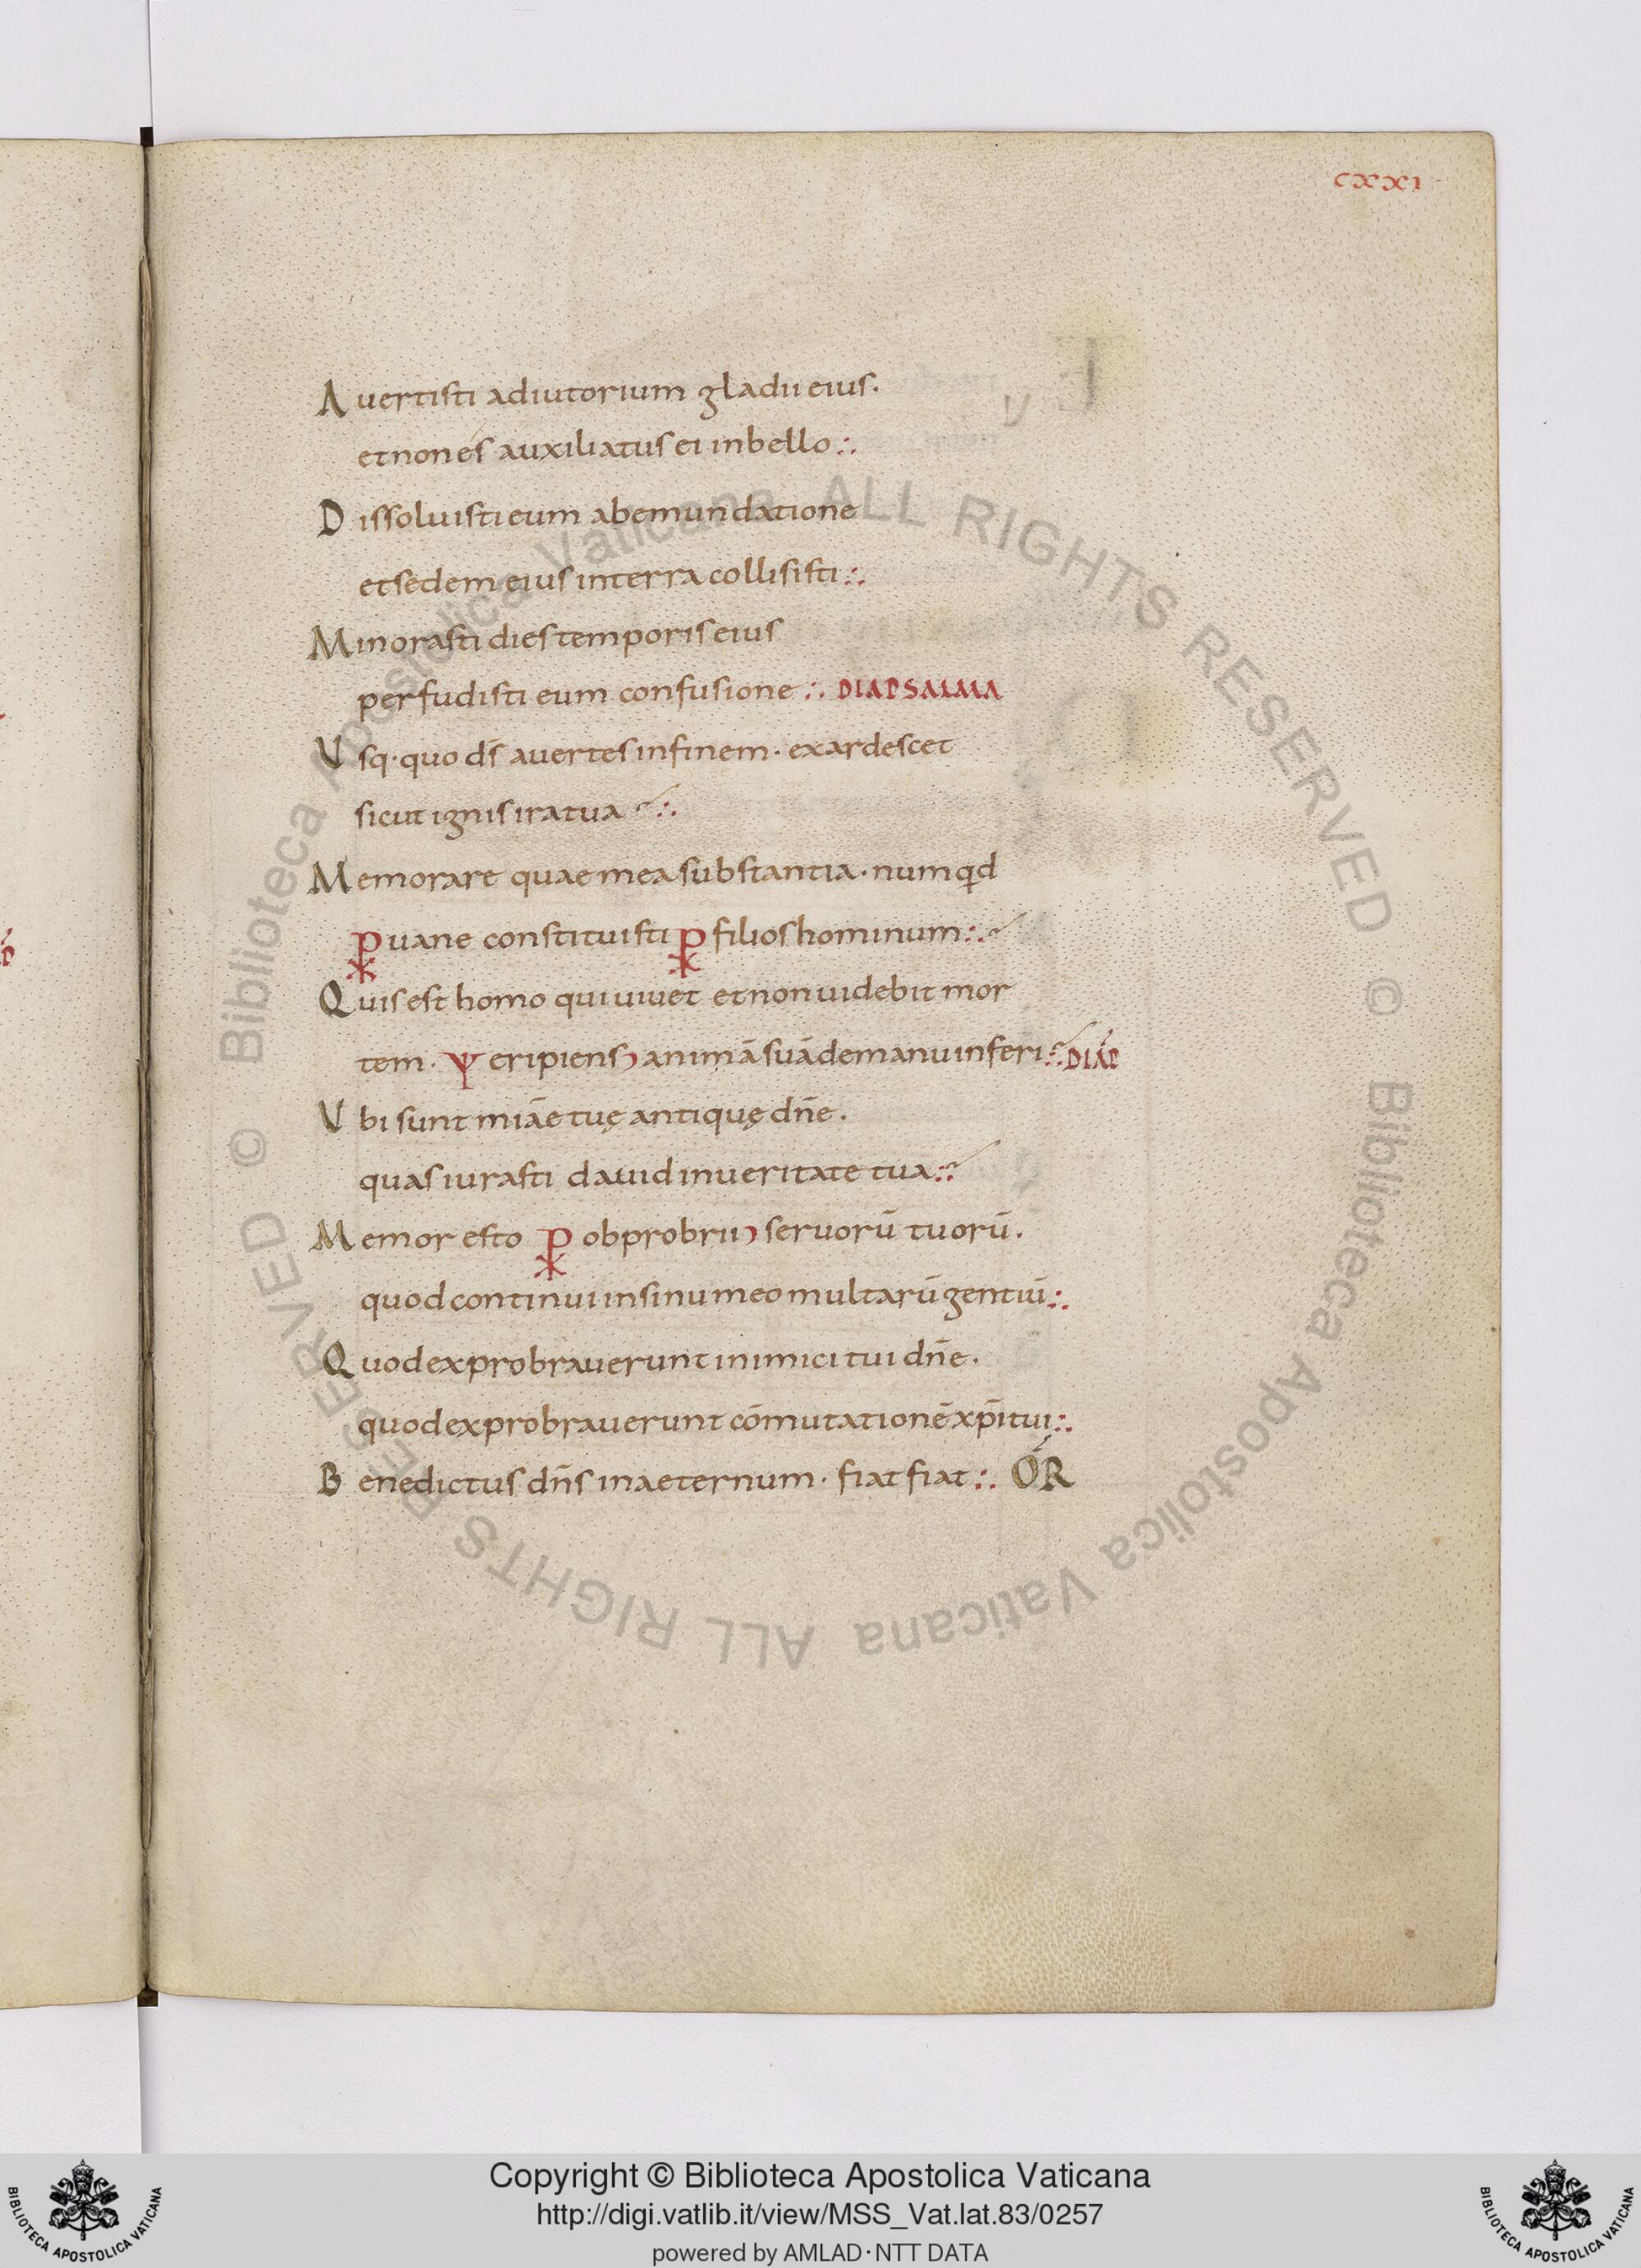 cxxi
Avertisti adiutorium gladii eius.
et non es auxiliatus ei in bello :.
Dissoluisti eum ab emundatione
et sedem eius in terra collisisti :.
Minorasti dies temporis eius
perfudisti eum confusione :. DIAPSALMA
Vsq· quo ds̄ avertes in finem · exardescet
sicut ignis ira tua :.
Memorare quae mea substantia · numqd
vane constituisti filios hominum :.
Quis est homo qui vivet et non videbit mor
tem. eripiens animā suā de manu inferi :. DIAP
Vbi sunt miāe tuę antiquę dn̄e.
quas iurasti david in veritate tua :.
Memor esto obprobrii servorū tuorū.
quod continui in sinu meo multarū gentiū :.
Quod exprobraverunt inimici tui dn̄e.
quod exprobraverunt cōmutationē xp̄i tui :.
Benedictus dn̄s in aeternum · fiat fiat :. OR
© Biblioteca Apostolica Vaticana ALL RIGHTS RESERVED © Biblioteca Apostolica Vaticana ALL RIGHTS RESERVED
Copyright © Biblioteca Apostolica Vaticana
http://digi.vatlib.it/view/MSS_Vat.lat.83/0257
powered by AMLAD·NTT DATA
BIBLIOTECA APOSTOLICA VATICANA
BIBLIOTECA APOSTOLICA VATICANA